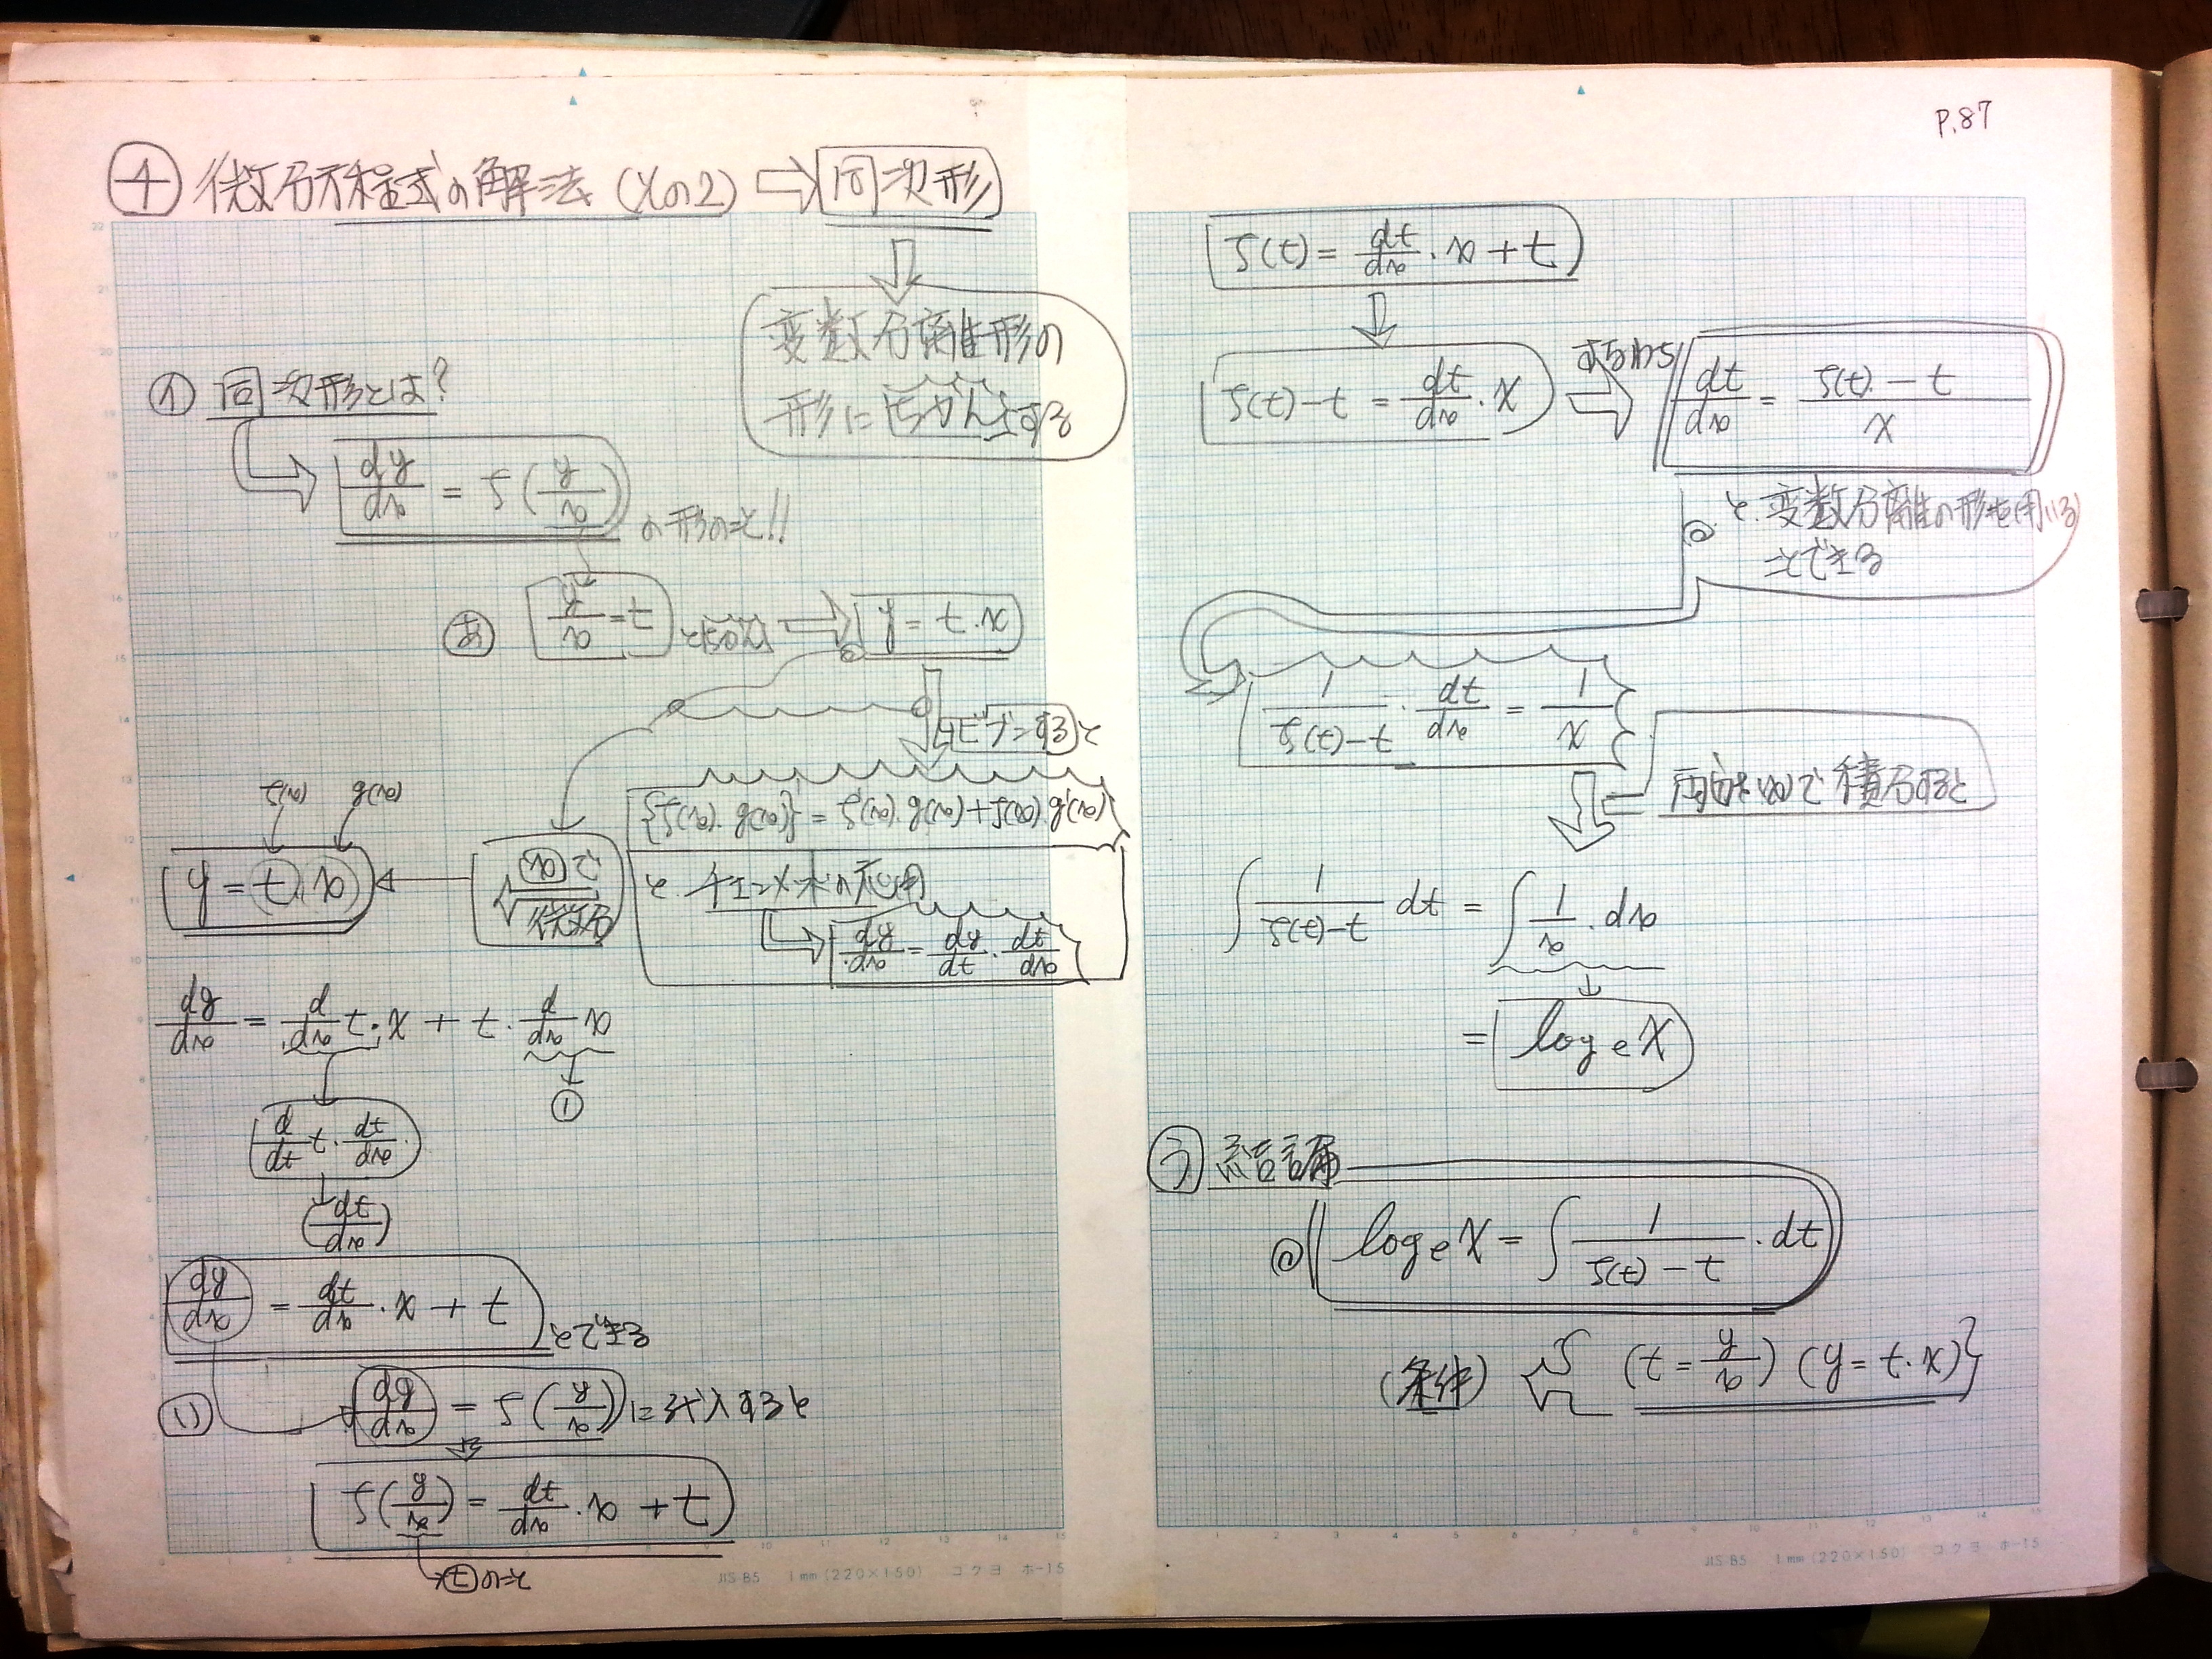 P.87
④ 微分方程式の解法 (Xの2) ⇒ 同次形
変数分離形の
形にちかんする
① 同次形とは?
dy/dx = f(y/x) の形のこと!!
あ y/x = t とおくと ⇒ y = t・x
ビブンするとと
{f(x)・g(x)}' = f'(x)・g(x) + f(x)・g'(x)
と チェーン
dy/dx = dy/dt・dt/dx
(x)で
微分
f(x) g(x)
y = t・x
dy/dx = d/dx t・x + t・d/dx x
①
d/dt t・dt/dx
(dt/dx)
dy/dx = dt/dx・x + t とできる
(い) dy/dx = f(y/x) に代入すると
f(y/x) = dt/dx・x + t
→ⓣのこと
JIS-B5 1mm(220×150) コクヨ ホ-15
f(t) = dt/dx・x + t
f(t) - t = dt/dx・x すなわち ⇒ dt/dx = (f(t) - t)/x
と、変数分離の形を用いる
ことできる
1/(f(t)-t)・dt/dx = 1/x
両方を(x)で積分すると
∫ 1/(f(t)-t) dt = ∫ 1/x・dx
= log e X
う 結論
@ log e X = ∫ 1/(f(t) - t)・dt
(条件) { (t = y/x) (y = t・x) }
JIS-B5 1mm(220×150) コクヨ ホ-15